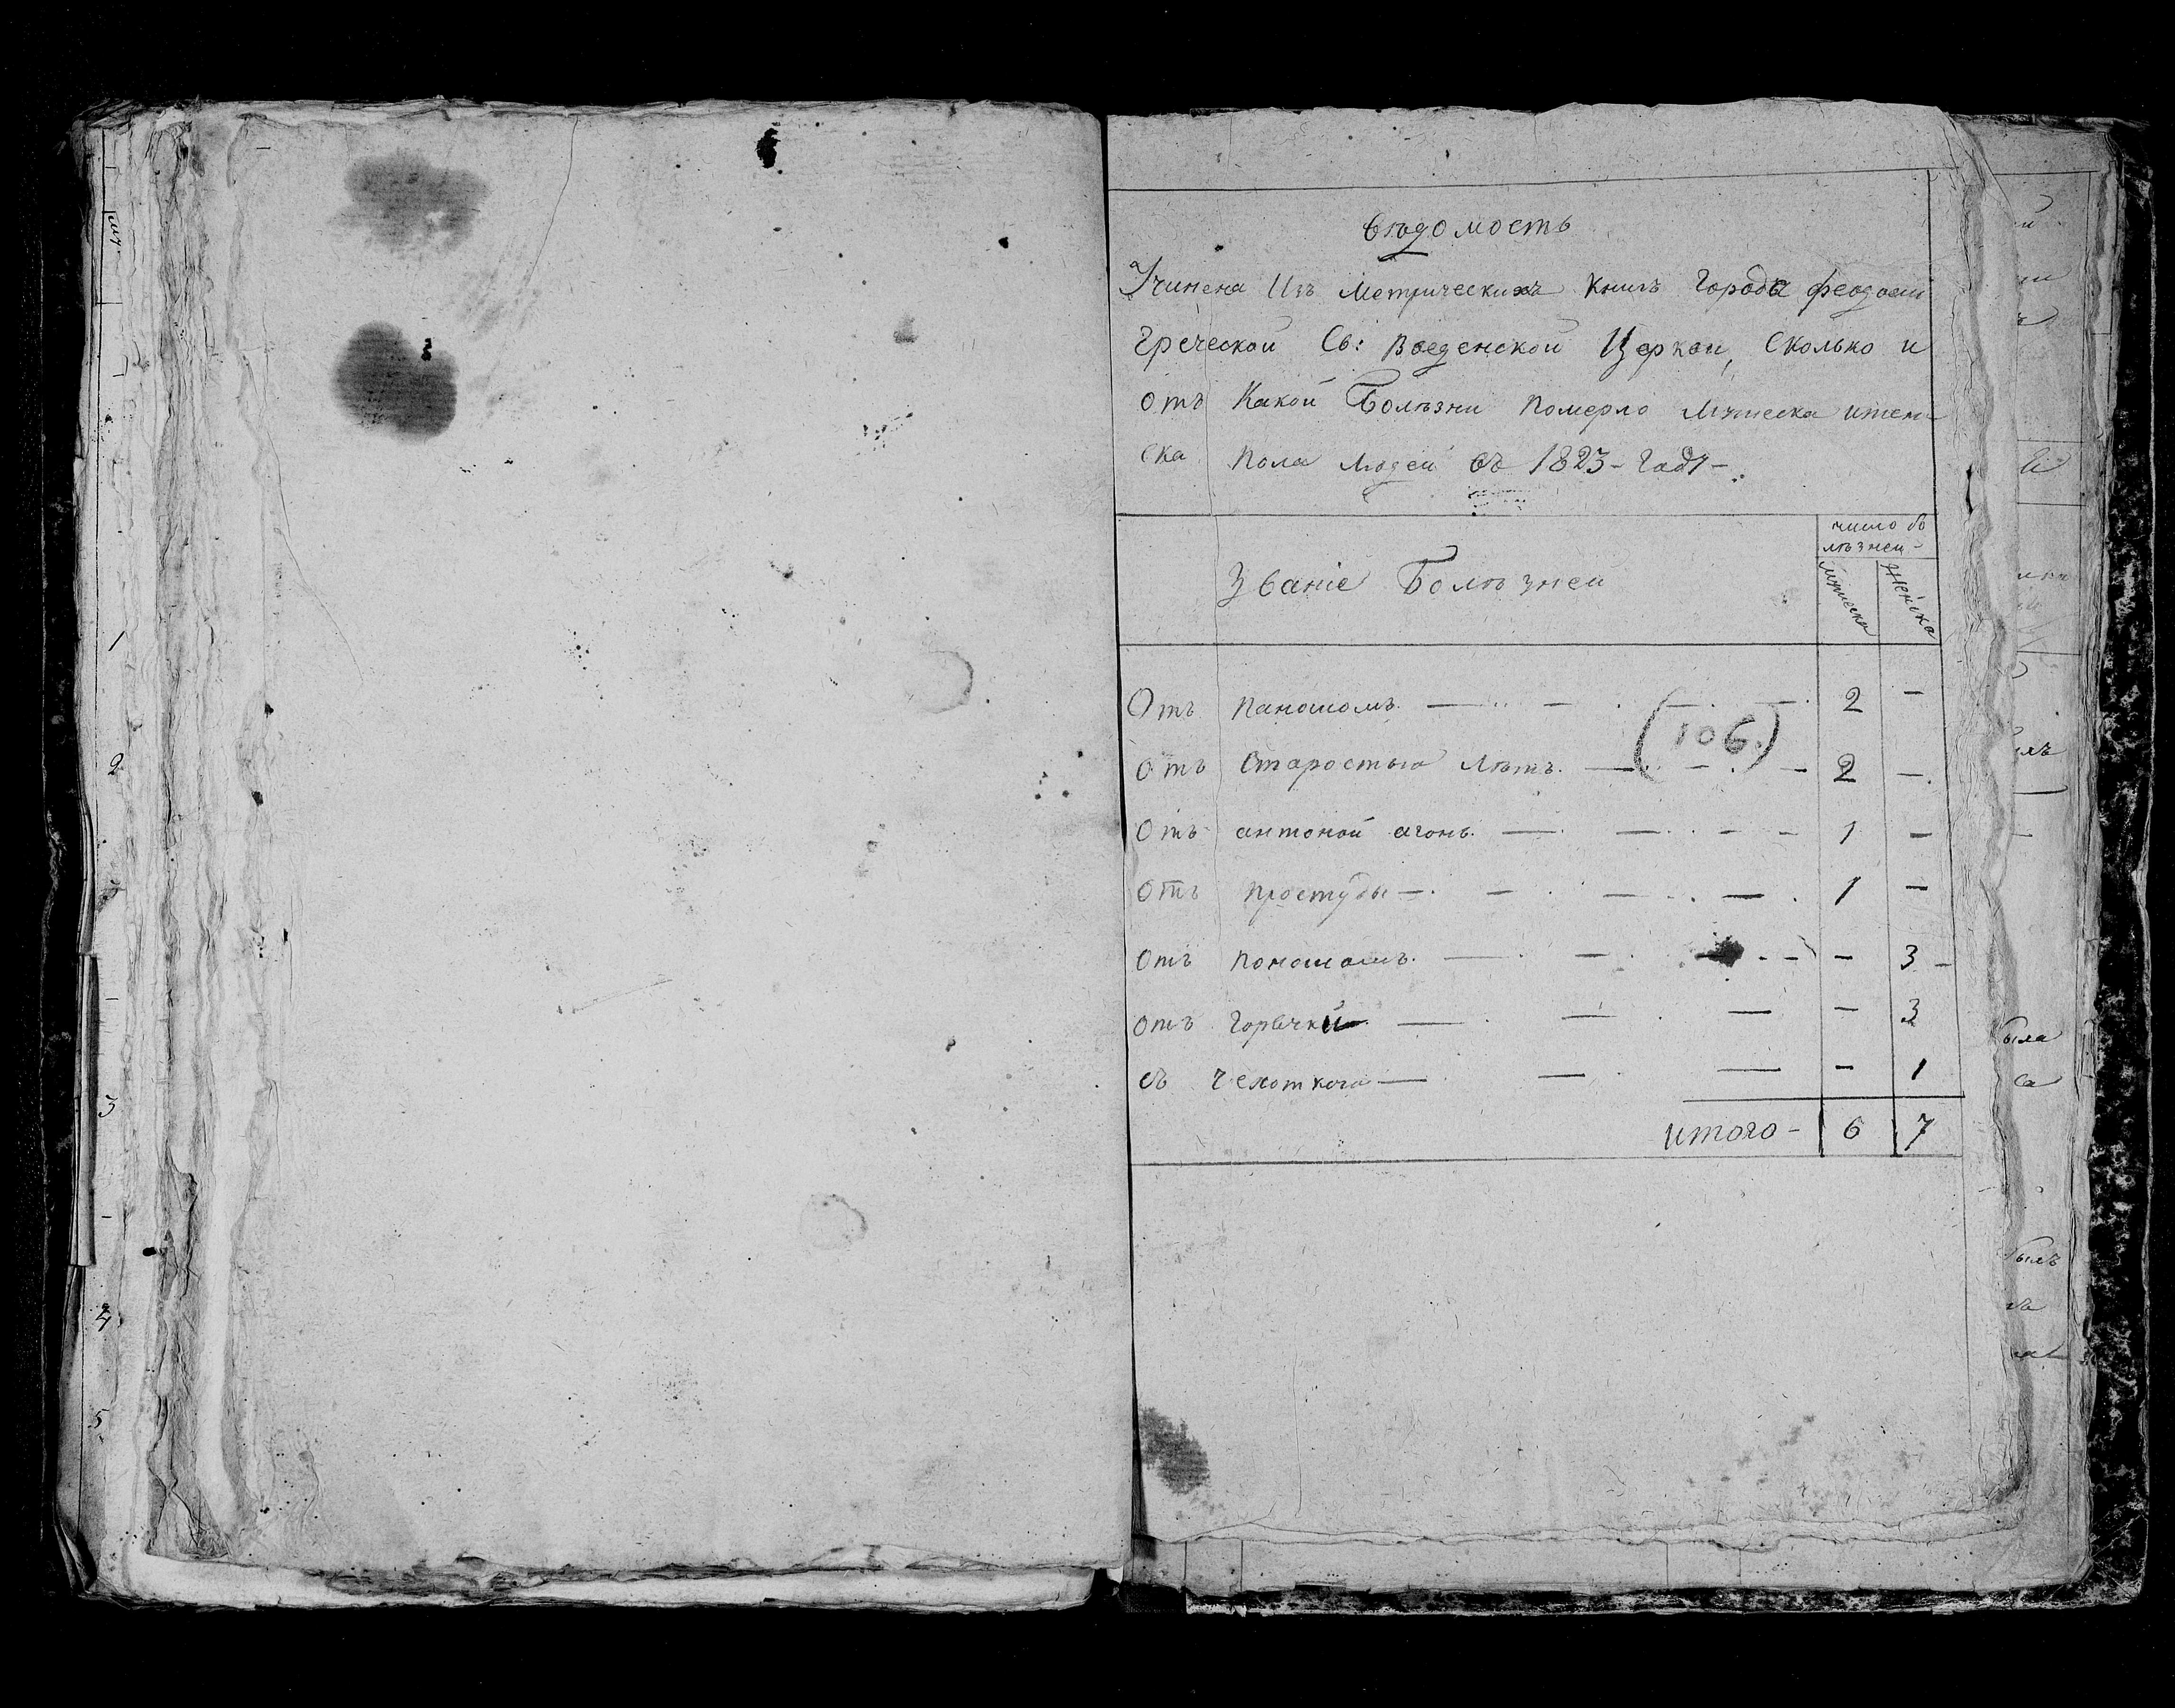 вѣдомость
Учинена Изъ Метрическихъ Книгъ города феодосии
греческой Св: Введенской Церкви, Сколько и
отъ Какой Болѣзни Померло Мужеска ижен-
ска Пола Людей въ 1823- Году-
Званіе Болѣзней
число бо
лѣзней-
Мужеска
Женска
Отъ Паносомъ 2 —
(106.)
отъ Старостью Лѣтъ. 2 —
отъ антоной агонь. 1 —
отъ Простуды 1 —
отъ Поносомъ. — 3
отъ Горечкй — 3
съ Чехоткою — 1
итого- 6 7